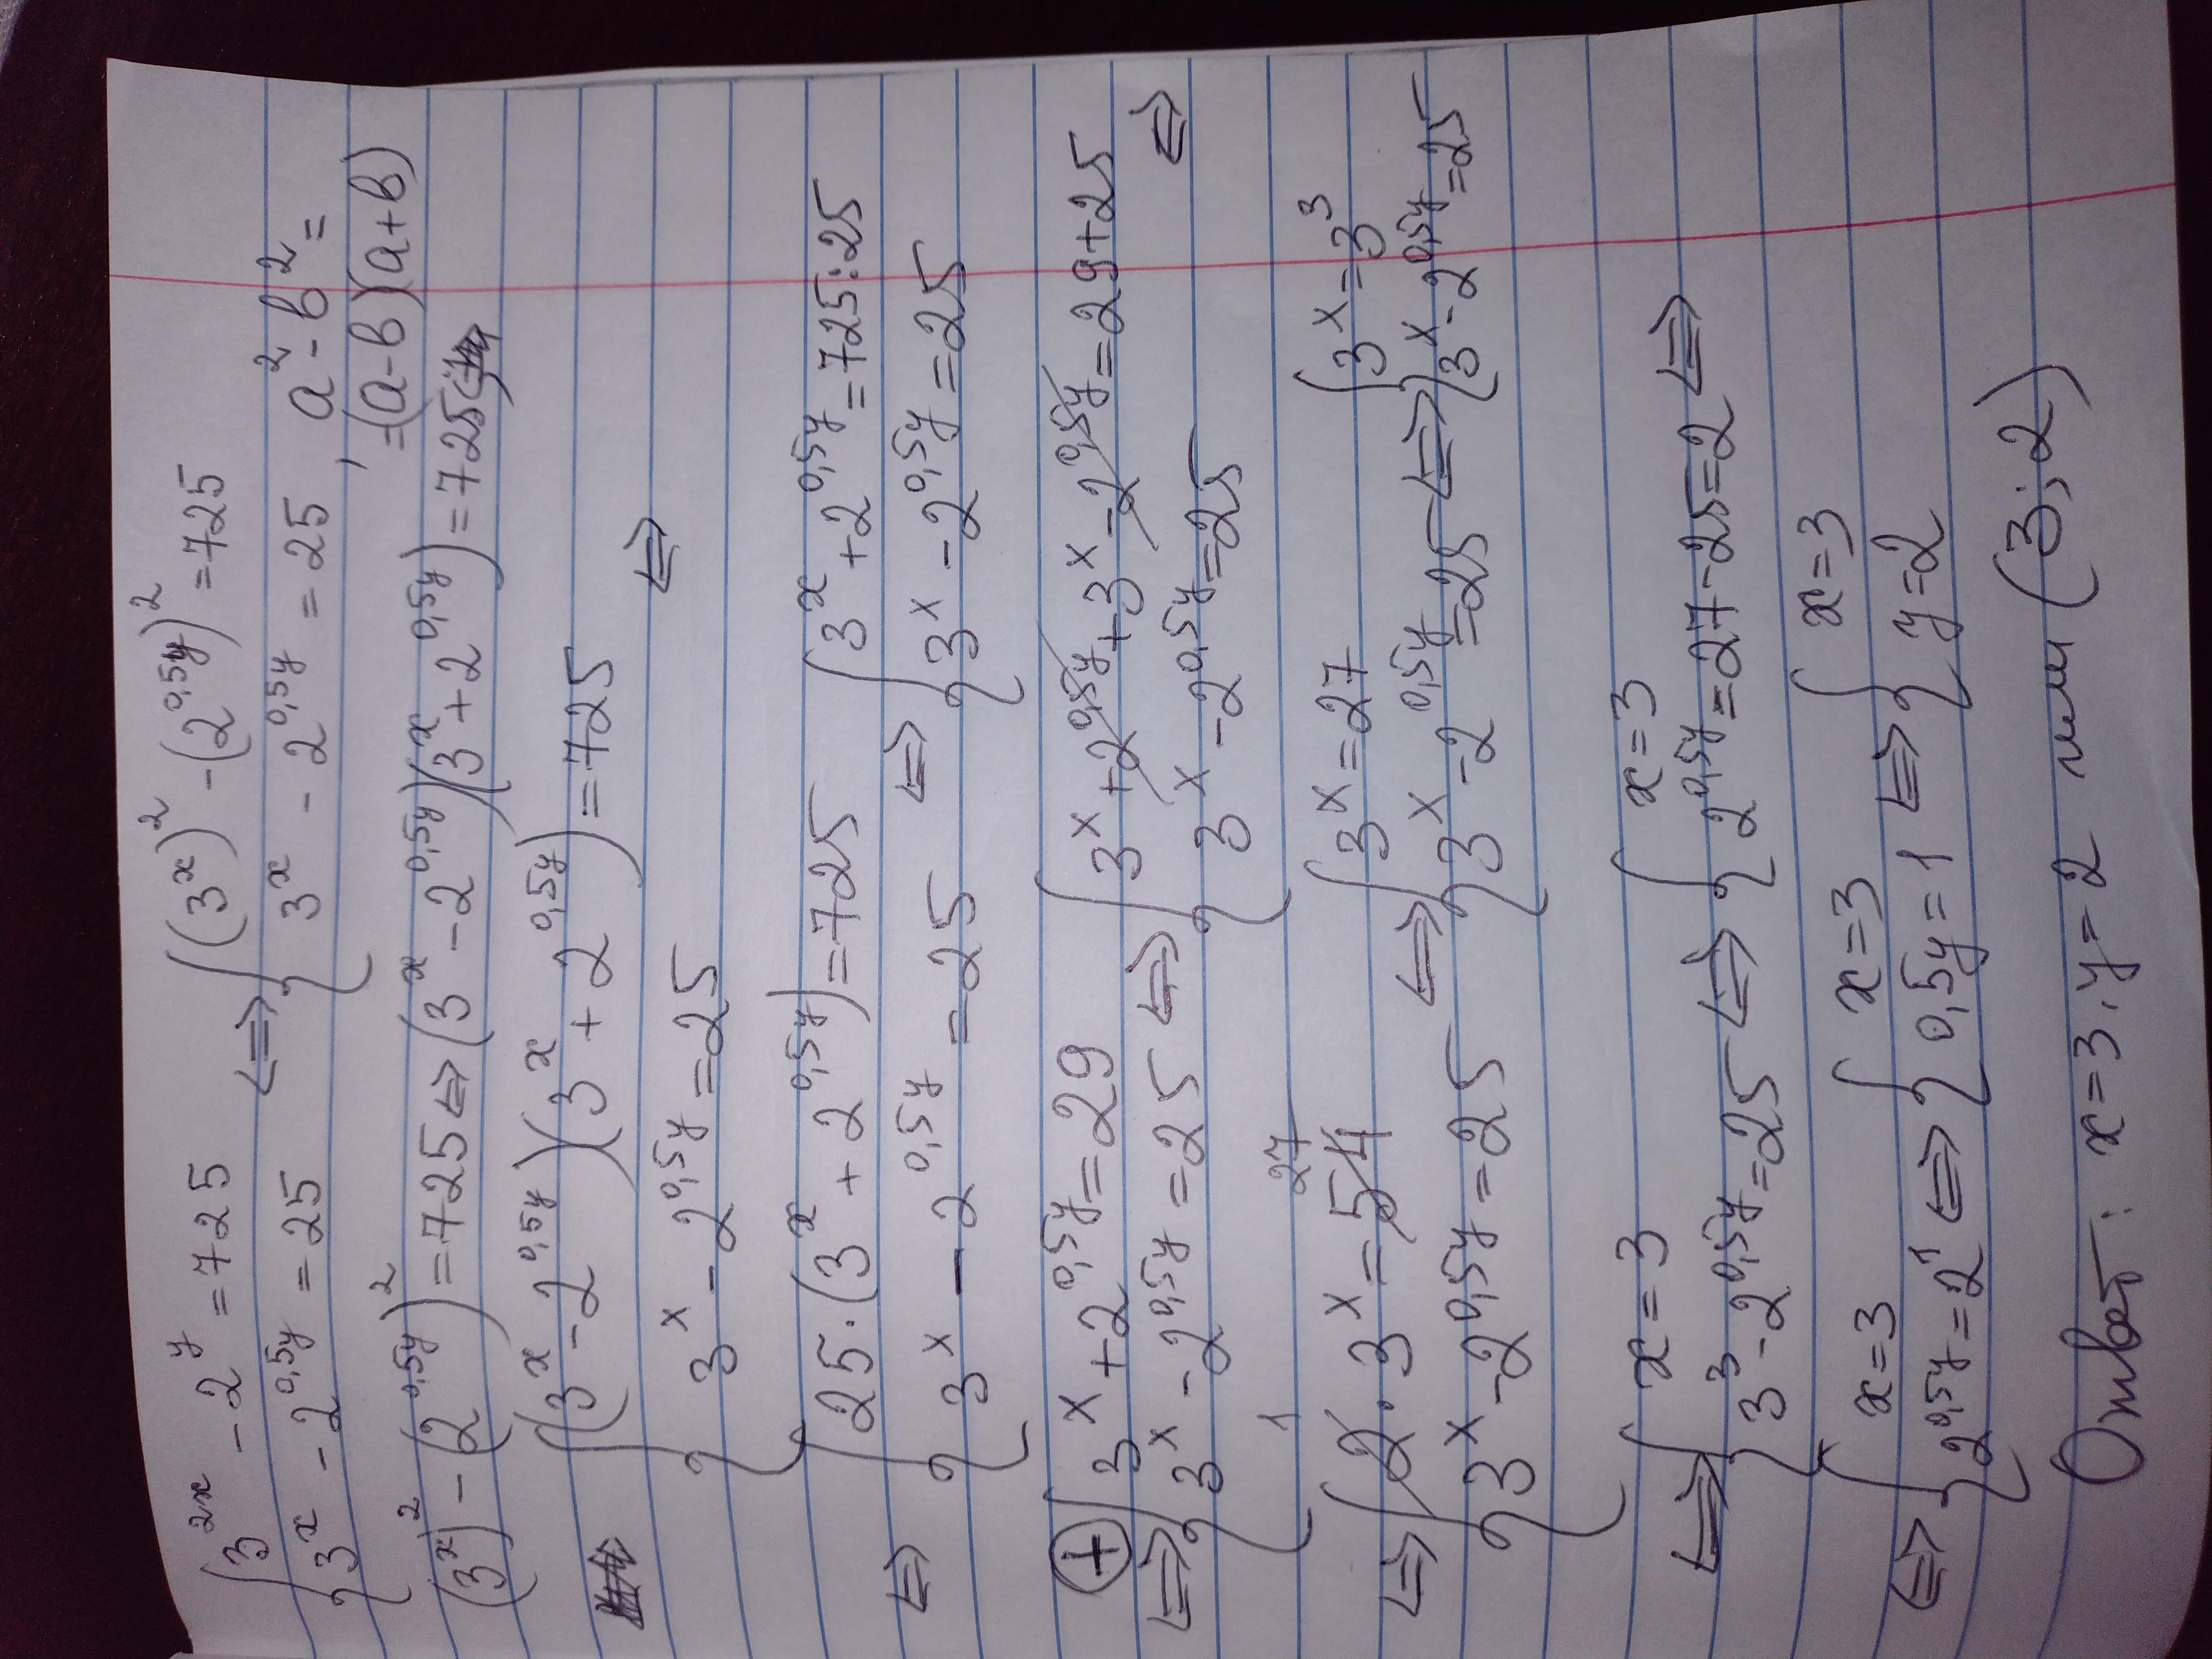 {3^{2x} - 2^y = 725 <=> {(3^x)^2 - (2^{0,5y})^2 = 725
{3^x - 2^{0,5y} = 25 {3^x - 2^{0,5y} = 25 , a^2 - b^2 =
= (a - b)(a + b)
(3^x)^2 - (2^{0,5y})^2 = 725 <=> (3^x - 2^{0,5y})(3^x + 2^{0,5y}) = 725
{(3^x - 2^{0,5y})(3^x + 2^{0,5y}) = 725
{3^x - 2^{0,5y} = 25 <=>
<=> {25 · (3^x + 2^{0,5y}) = 725 <=> {3^x + 2^{0,5y} = 725 : 25
{3^x - 2^{0,5y} = 25 {3^x - 2^{0,5y} = 25
<=> (+) {3^x + 2^{0,5y} = 29 <=> {3^x + 2^{0,5y} + 3^x - 2^{0,5y} = 29 + 25
{3^x - 2^{0,5y} = 25 {3^x - 2^{0,5y} = 25 <=>
1 27
<=> {2 · 3^x = 54 <=> {3^x = 27 <=> {3^x = 3^3
{3^x - 2^{0,5y} = 25 {3^x - 2^{0,5y} = 25 {3^x - 2^{0,5y} = 25
<=> {x = 3 <=> {x = 3
{3^3 - 2^{0,5y} = 25 {2^{0,5y} = 27 - 25 = 2 <=>
<=> {x = 3 <=> {x = 3 <=> {x = 3
{2^{0,5y} = 2^1 {0,5y = 1 {y = 2
Ответ: x = 3, y = 2 или (3; 2)